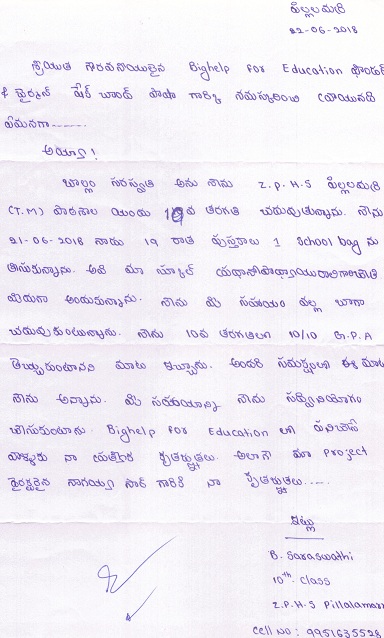 పిల్లలమర్రి
22-06-2018
శ్రీయుత గౌరవనీయులైన Bighelp for Education ఫౌండర్
& ఛైర్మన్ షేక్ చాంద్ పాషా గారికి నమస్కరించి వ్రాయునది
ఏమనగా......
అయ్యా!
బాల్లం సరస్వతి అను నేను Z.P.H.S పిల్లలమర్రి
(T.M) పాఠశాల యందు 10వ తరగతి చదువుతున్నాను. నేను
21-06-2018 నాడు 19 రాత పుస్తకాలు 1 School bag ను
తీసుకున్నాను. అవి మా స్కూల్ ప్రధానోపాధ్యాయురాలిగారిచేతి
మీదుగా అందుకున్నాను. నేను మీ సహాయం వల్ల బాగా
చదువుకుంటున్నాను. నేను 10వ తరగతిలో 10/10 G.P.A
తెచ్చుకుంటానని మాట ఇచ్చాను. అందరి సమక్షంలో ఈ మాట
నేను అన్నాను. మీ సహాయాన్ని నేను సద్వినియోగం
చేసుకుంటాను. Bighelp for Education లో పనిచేసే
వాళ్ళకు నా యొక్క కృతజ్ఞతలు. అలాగే మా Project
డైరెక్టరైన నాగయ్య సార్ గారికి నా కృతజ్ఞతలు.....
ఇట్లు
B. Saraswathi
10th class
Z.P.H.S Pillalamarri
Cell NO: 9951635526